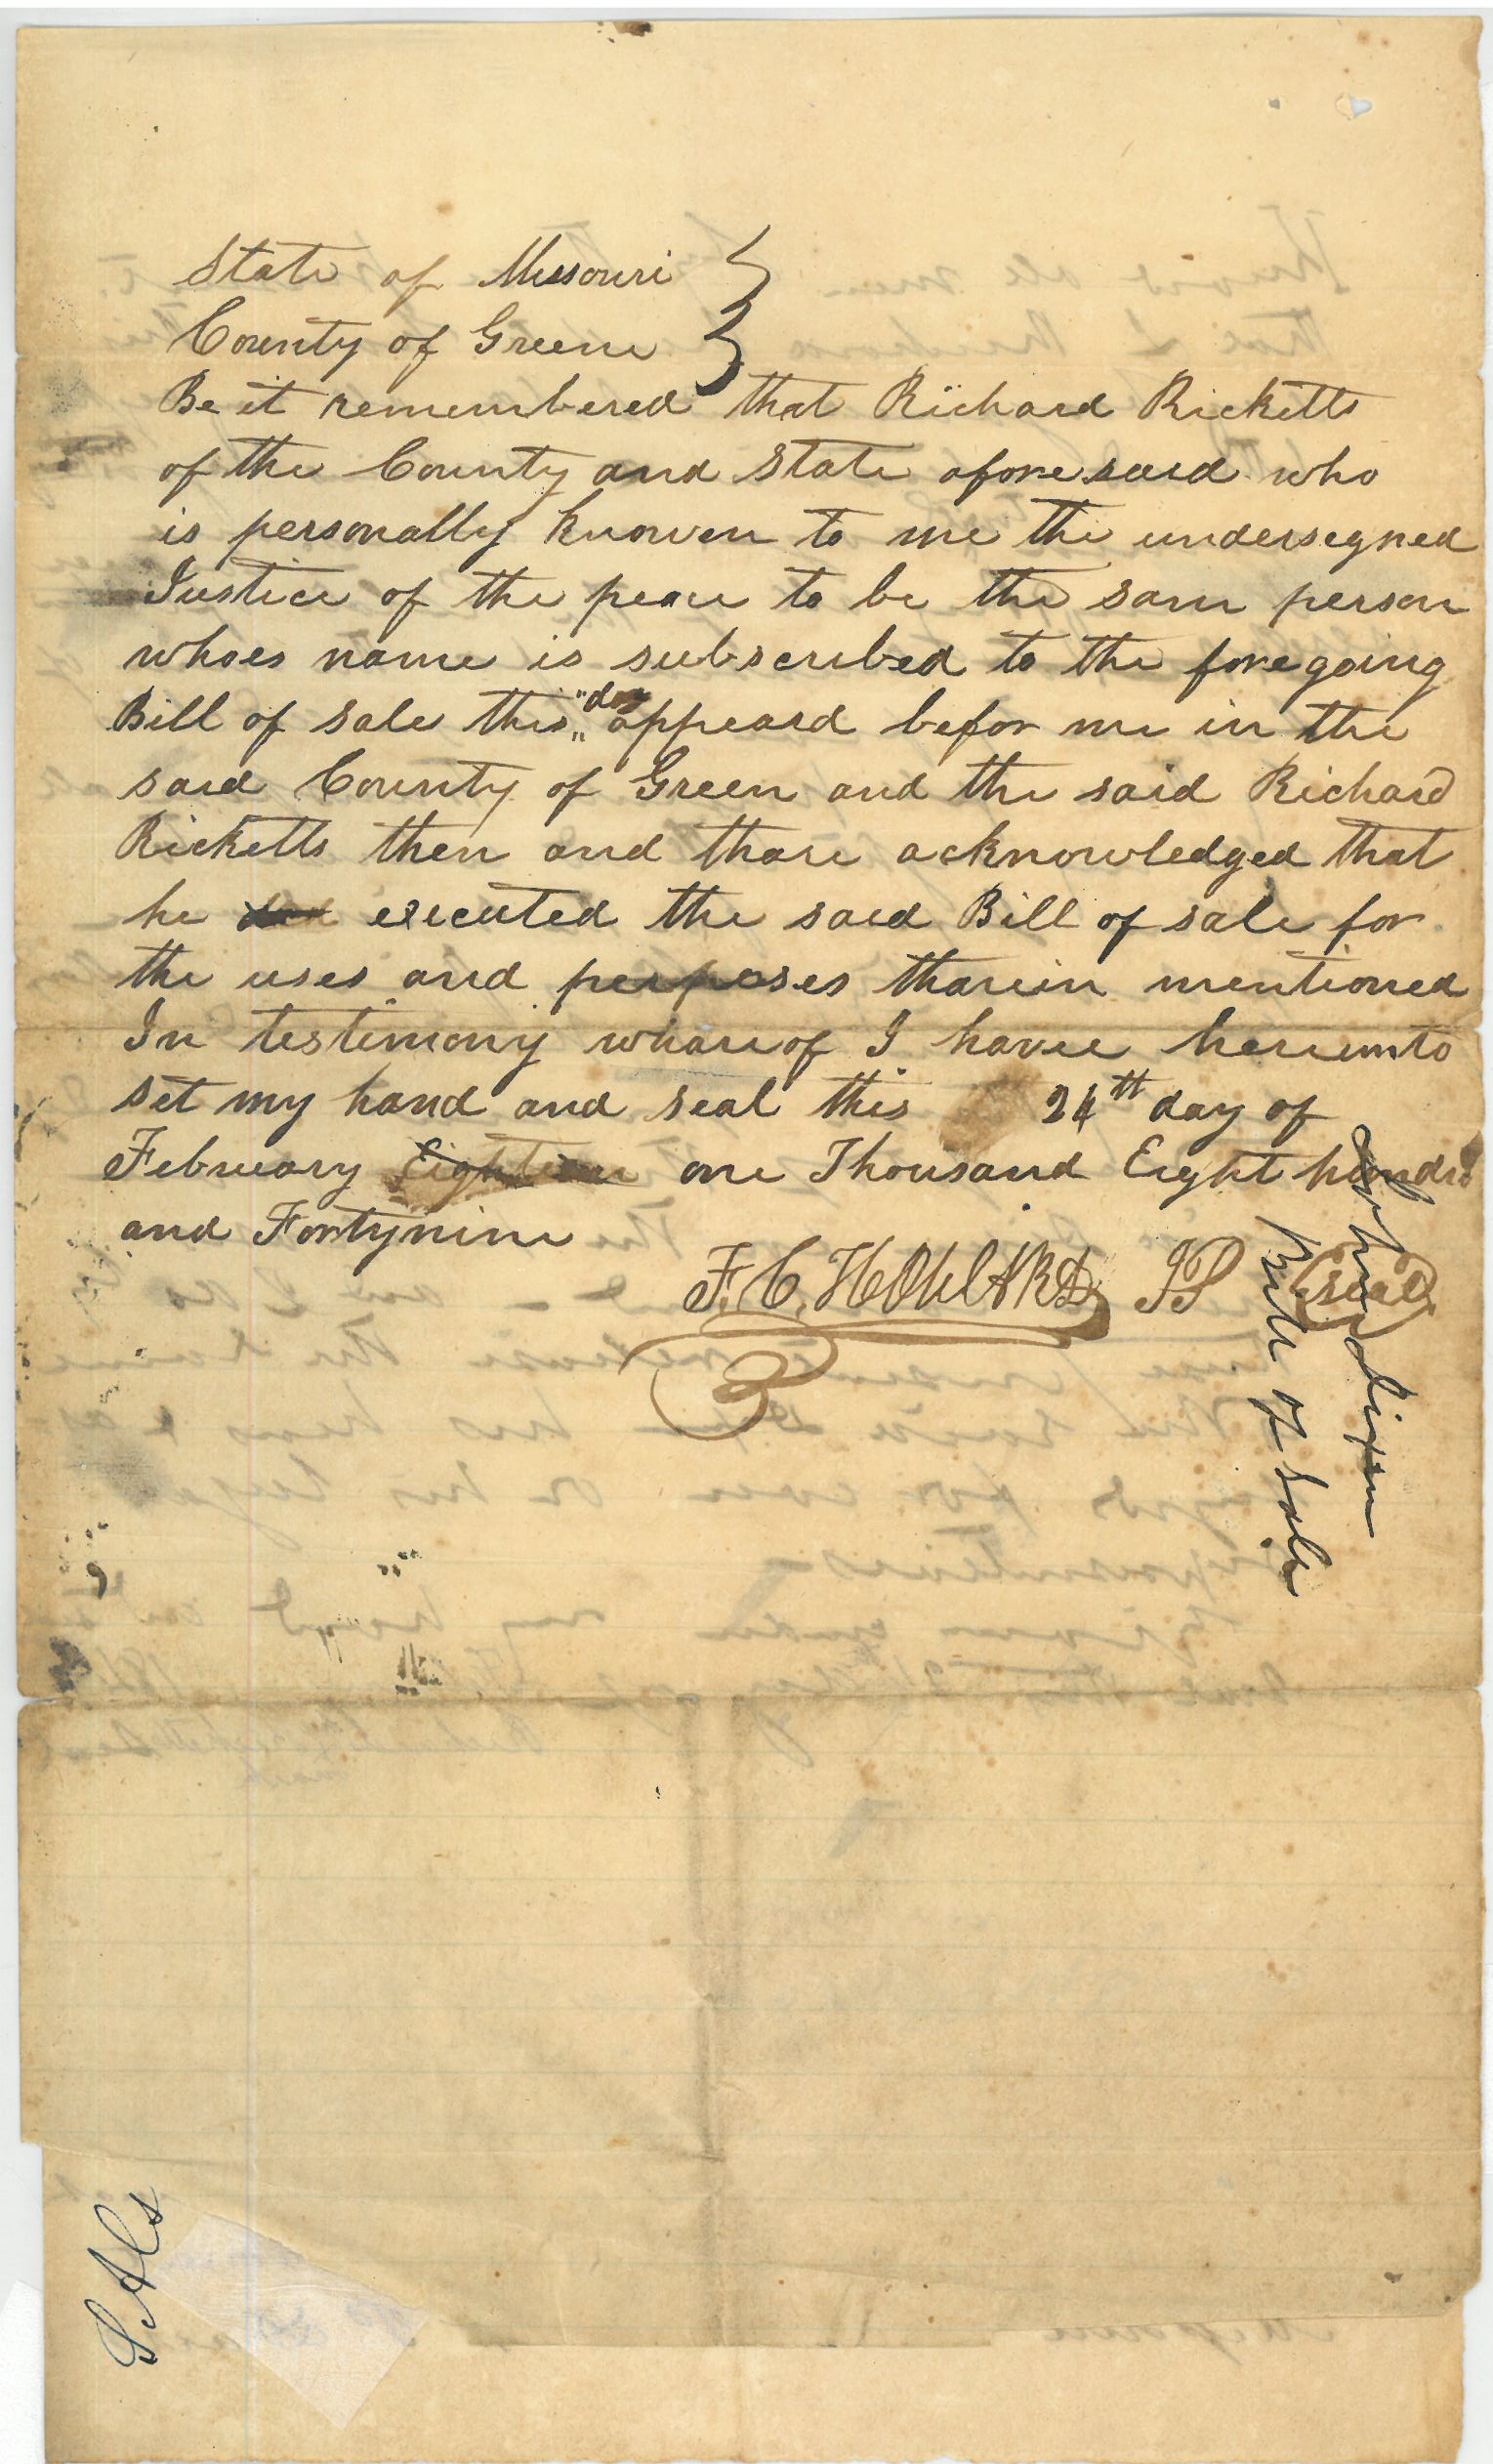 State of Missouri
County of Greene
Be it remembered that Richard Ricketts
of the County and State aforesaid who
is personally knowen to me the undersegned
Justice of the peace to be the sam person
whoes name is subscribed to the foregoing
Bill of sale this "day" appeard befor me in the
said County of Green and the said Richard
Ricketts then and thare acknowledged that
he executed the said Bill of sale for
the uses and perposes tharein mentioned
In testimony whareof I have hereunto
set my hand and seal this 24th day of
February Eighteen one Thousand Eight hundrd
and Fortynine
F. C. JP (seal)
Bill of Sale
S. Als